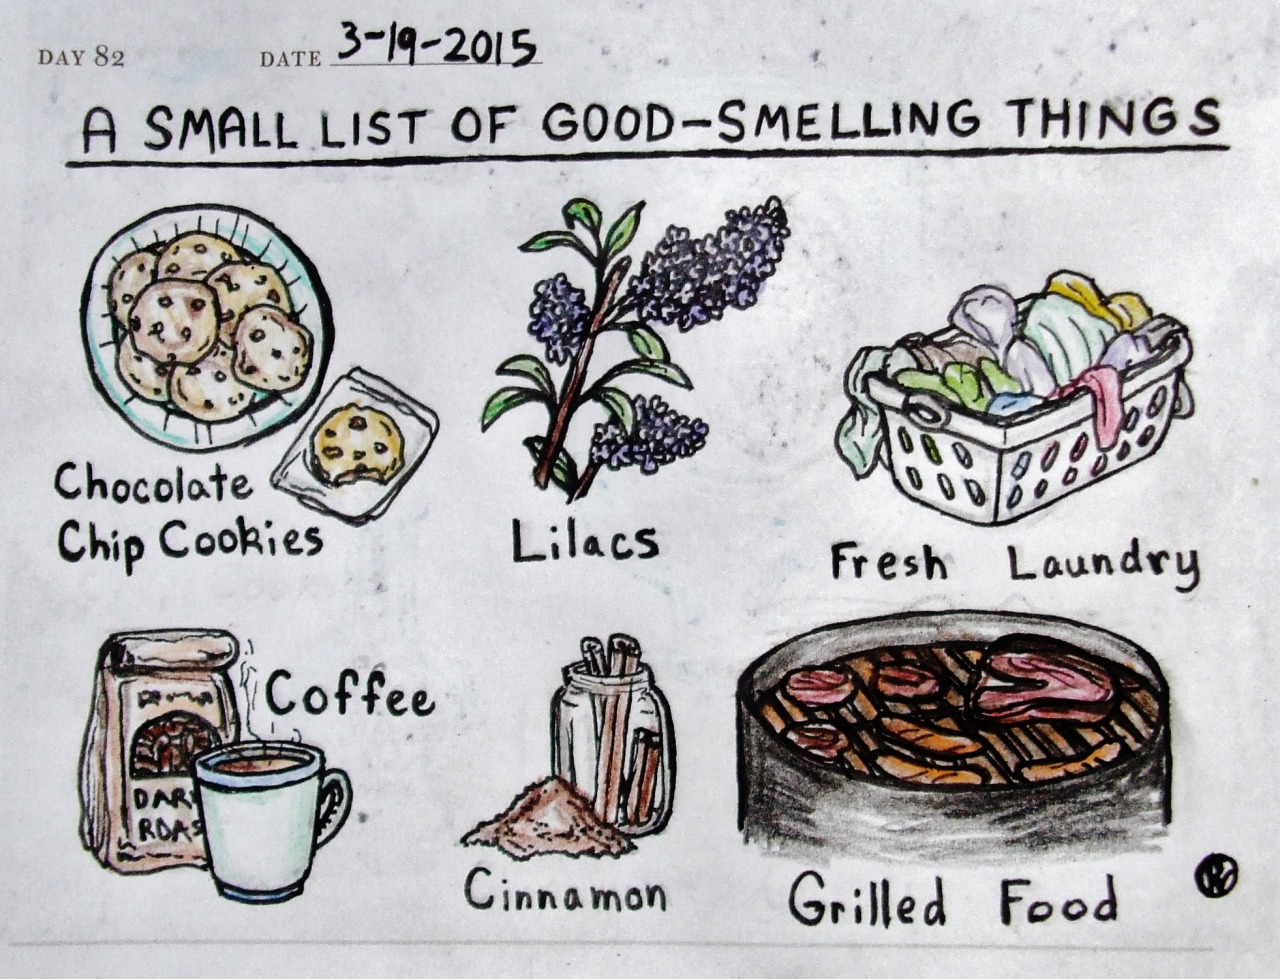 DAY 82
DATE 3-19-2015
A SMALL LIST OF GOOD-SMELLING THINGS
Chocolate
Chip Cookies
Lilacs
Fresh Laundry
DAR
ROAS
Coffee
Cinnamon
Grilled Food